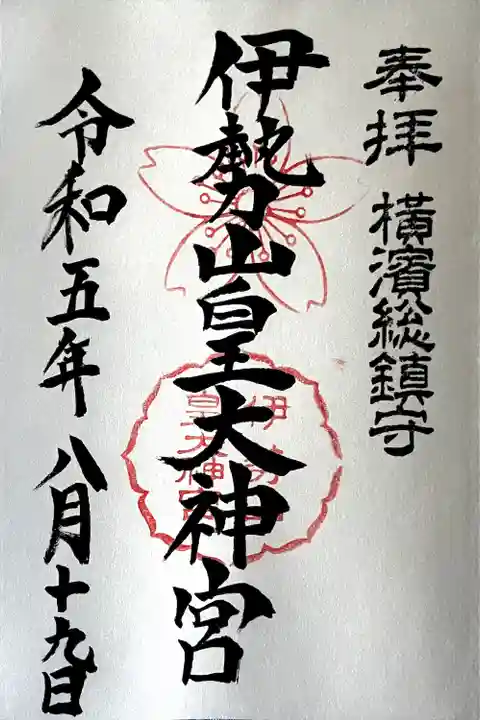 奉拝 横濱総鎮守
伊勢山皇大神宮
伊勢山
皇大神宮
令和五年八月十九日